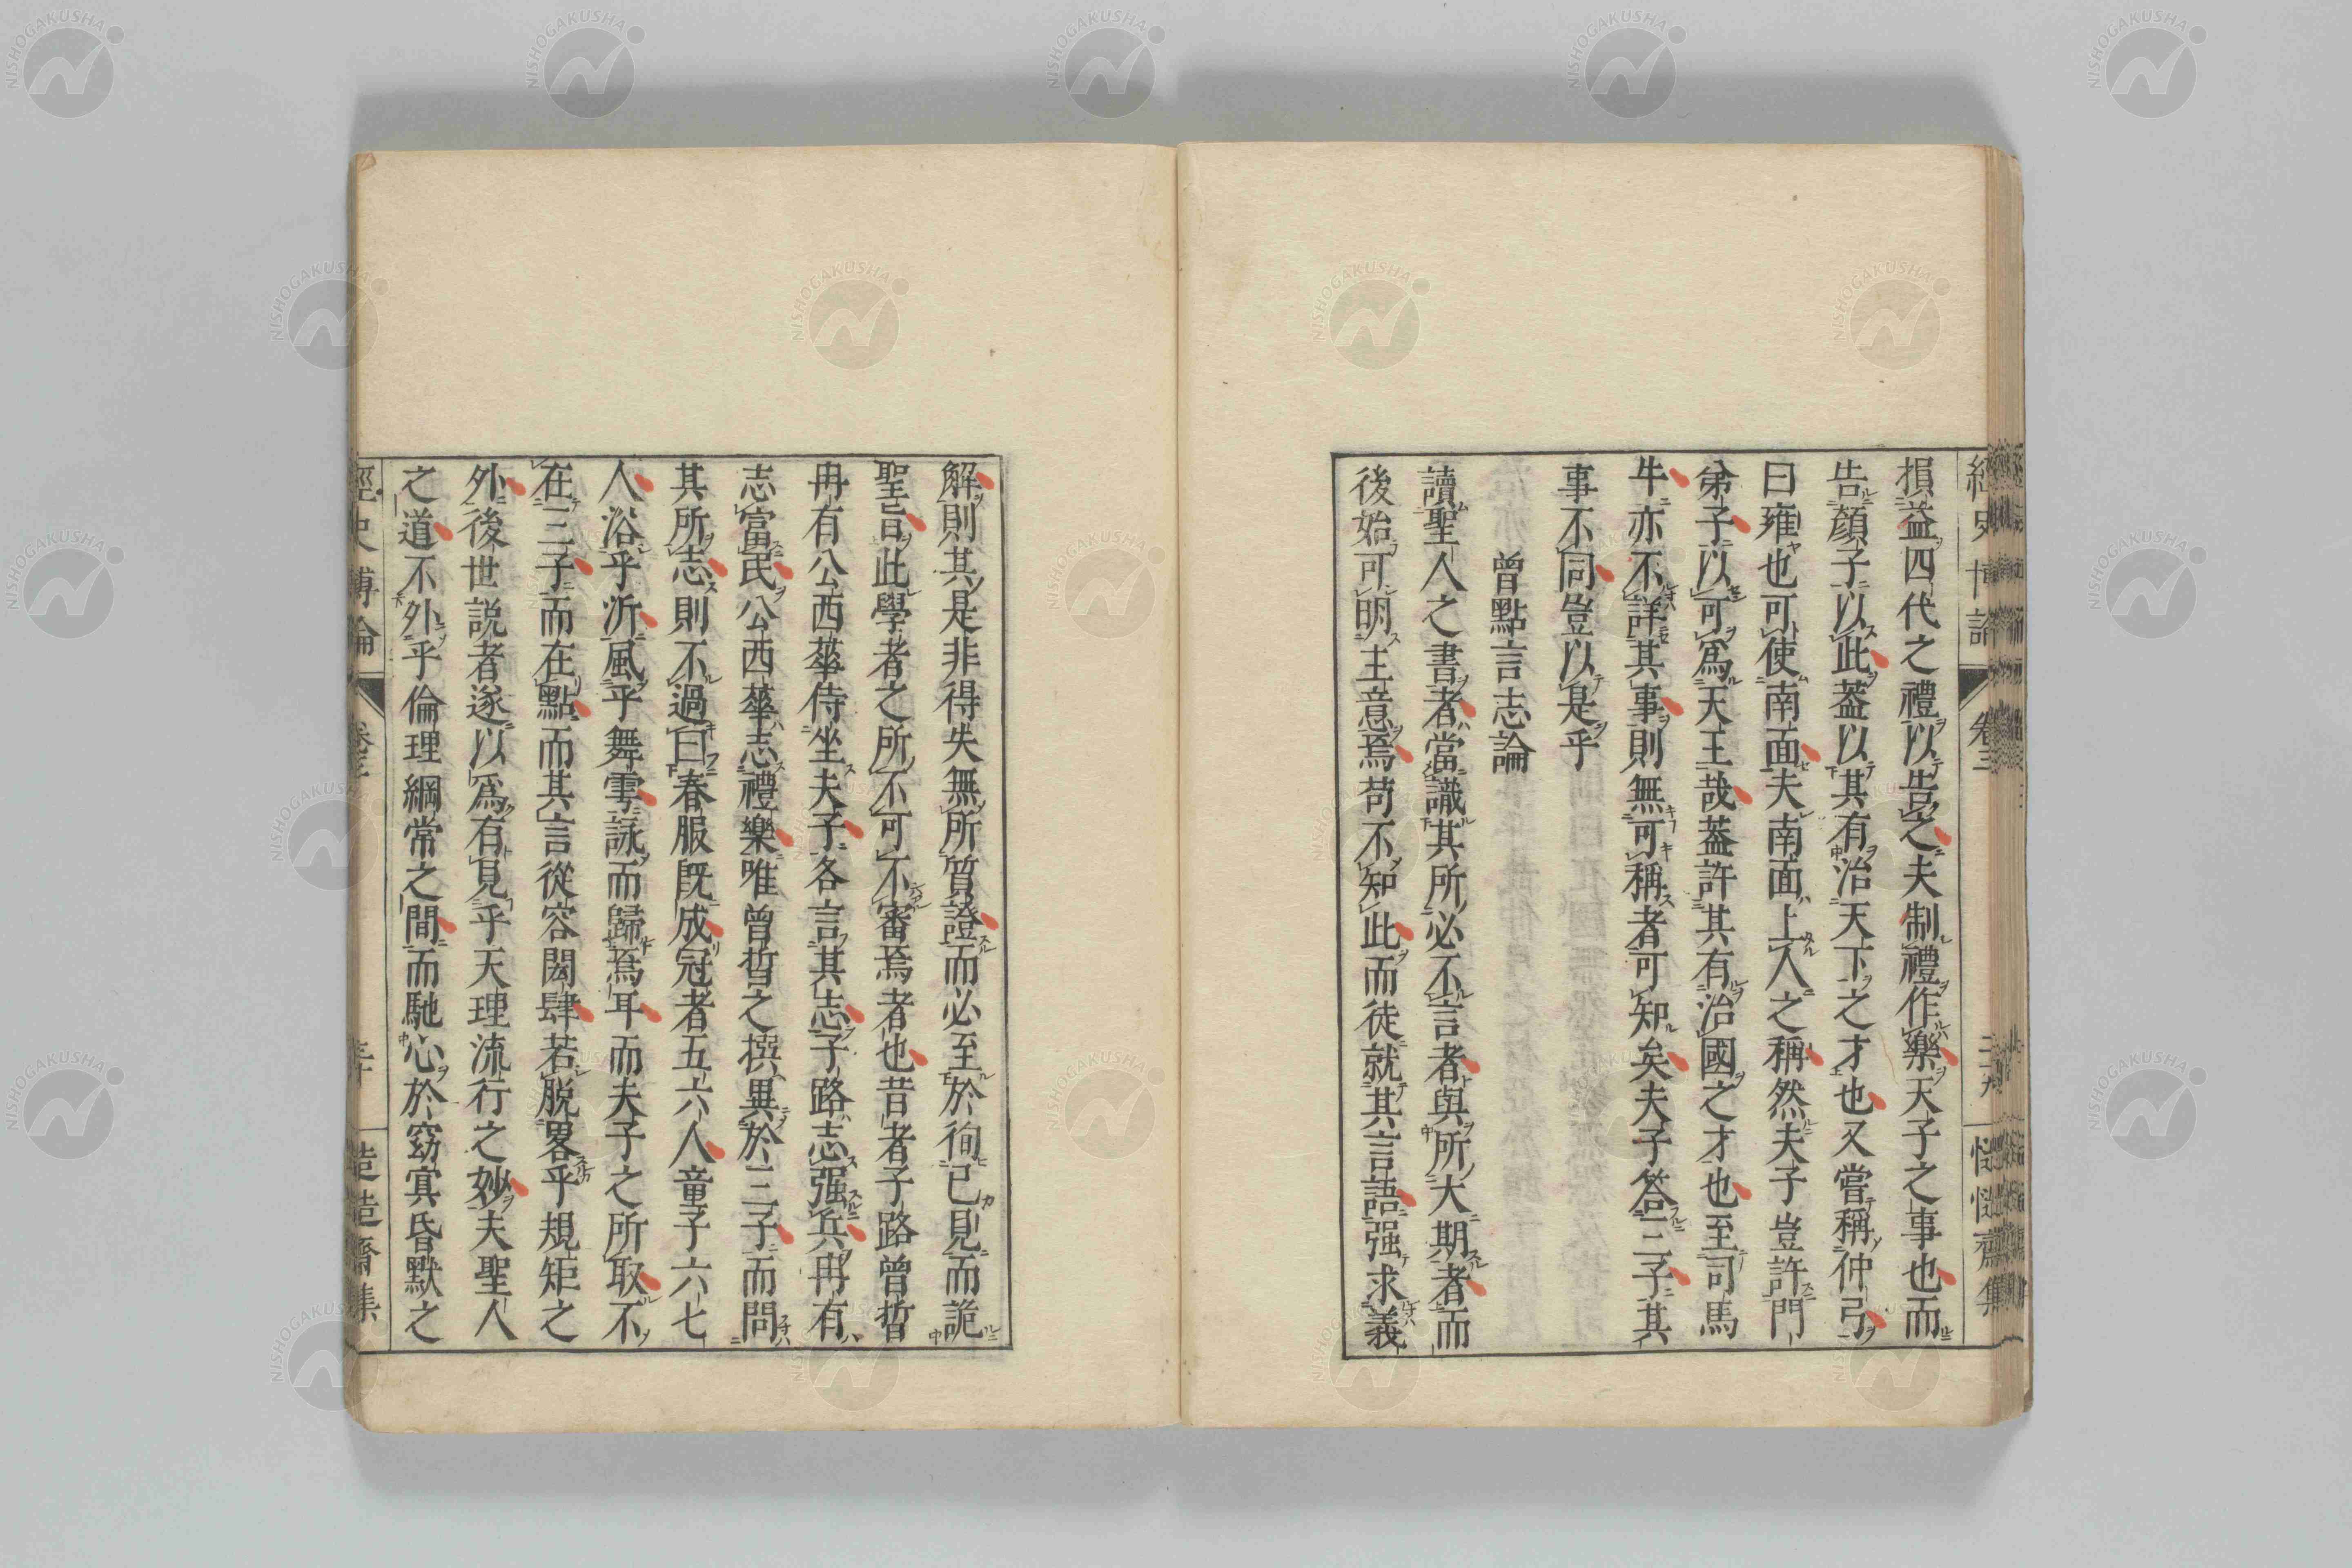 損益四代之禮以告之夫制禮作樂天子之事也而
告顏子以此蓋以其有治天下之才也又嘗稱仲弓
曰雍也可使南面夫南面上人之稱然夫子豈許門
弟子以可爲天王哉蓋許其有治國之才也至司馬
牛亦不詳其事則無可稱者可知矣夫子答三子其
事不同豈以是乎
曾點言志論
讀聖人之書者當識其所必不言者與所大期者而
後始可明主意焉苟不知此而徒就其言語强求義
解則其是非得失無所質證而必至於徇己見而詭
聖旨此學者之所不可不審焉者也昔者子路曾晳
冉有公西華侍坐夫子各言其志子路志强兵冉有
志富民公西華志禮樂唯曾晳之撰異於三子而問
其所志則不過曰春服既成冠者五六人童子六七
人浴乎沂風乎舞雩詠而歸焉耳而夫子之所取不
在三子而在點而其言從容閎肆若脱畧乎規矩之
外後世説者遂以爲有見乎天理流行之妙夫聖人
之道不外乎倫理綱常之間而馳心於窈寞昏默之
經史博論 卷三 三十